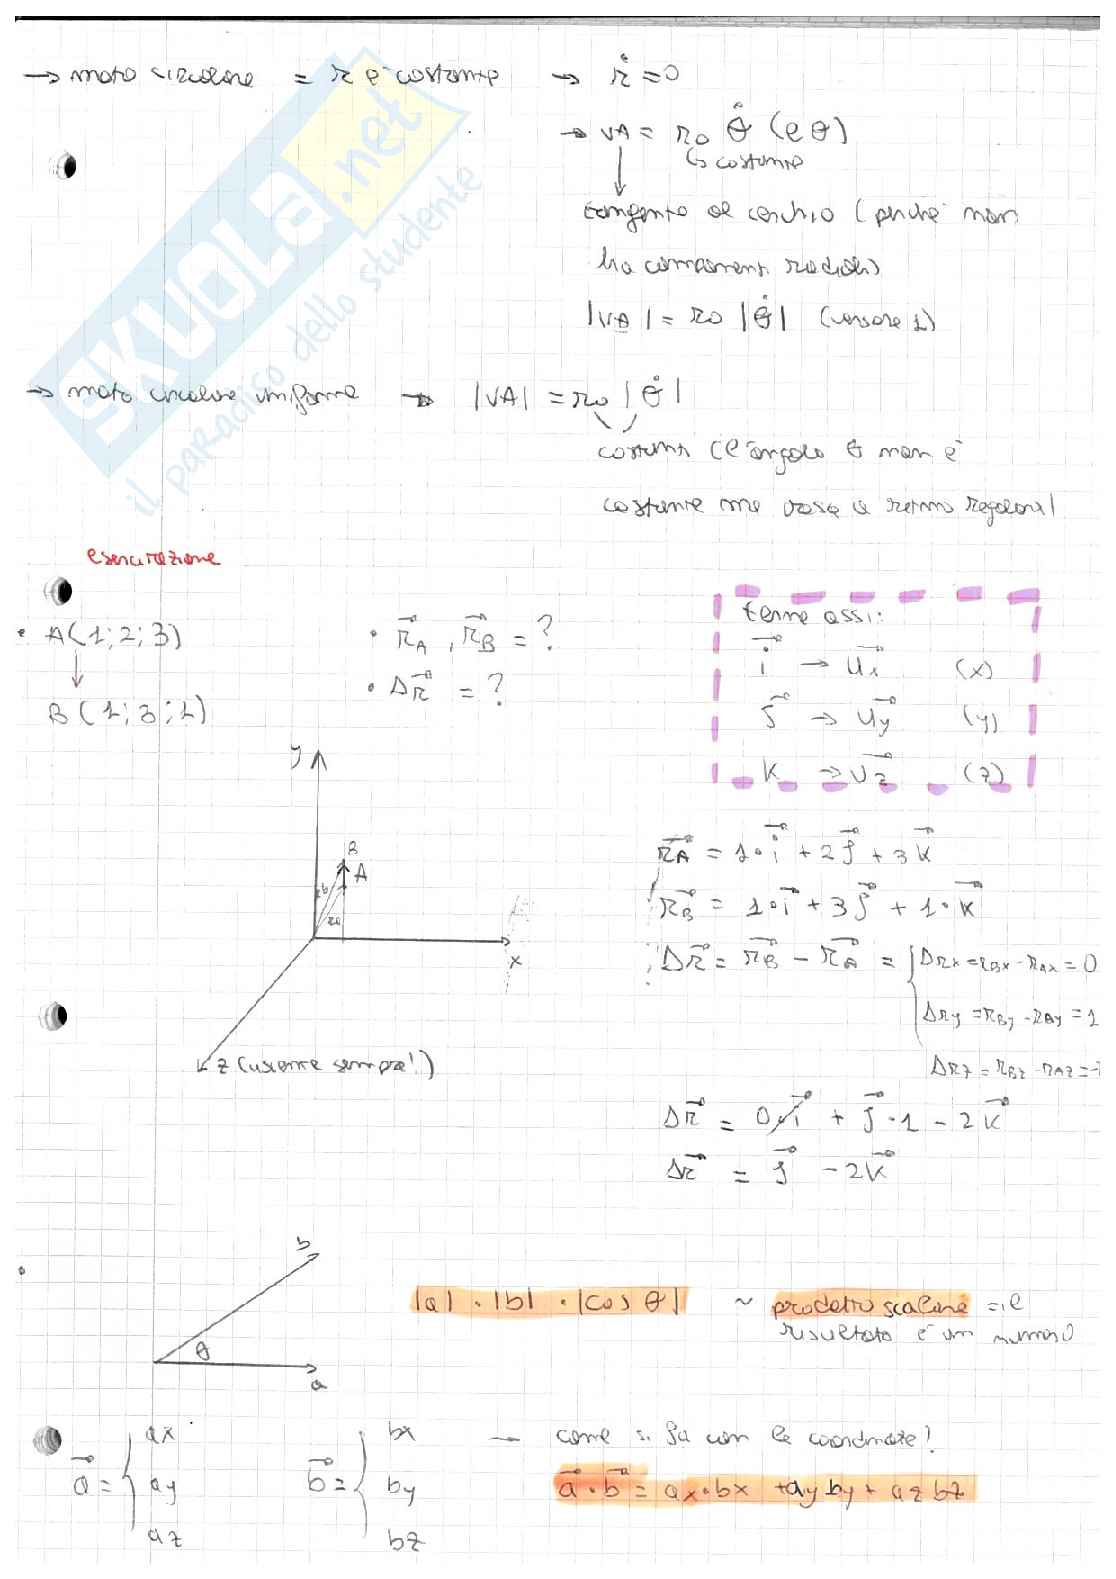 → moto circolare = r è costante → ṙ = 0
→ vA = r0 θ̇ (e θ)
↳ costante
tangente al cerchio (perché non
ha componenti radiali)
|vA| = r0 |θ̇| (versore 1)
→ moto circolare uniforme → |vA| = r0 |θ̇|
costanti (l'angolo θ non è
costante ma varia a ritmo regolare)
SKUOLA.net
il paradiso dello studente
esercitazione
• A(1; 2; 3)
B(1; 3; 1)
• r⃗A, r⃗B = ?
• Δr⃗ = ?
terne assi:
i⃗ → u⃗x (x)
j⃗ → u⃗y (y)
k → u⃗z (z)
y
B
A
rb
ra
x
z (uscente sempre!)
r⃗A = 1·i⃗ + 2j⃗ + 3k⃗
r⃗B = 1·i⃗ + 3j⃗ + 1·k⃗
Δr⃗ = r⃗B − r⃗A = { Δrx = rBx − rAx = 0
Δry = rBy − rAy = 1
Δrz = rBz − rAz = -
Δr⃗ = 0·i⃗ + j⃗·1 − 2k⃗
Δr⃗ = j⃗ − 2k⃗
b
θ
a
|a| · |b| · |cos θ| ~ prodotto scalare = il
risultato è un numero
a⃗ = { ax ay az
b⃗ = { bx by bz
— come si fa con le coordinate?
a⃗ · b⃗ = ax·bx + ay by + az bz